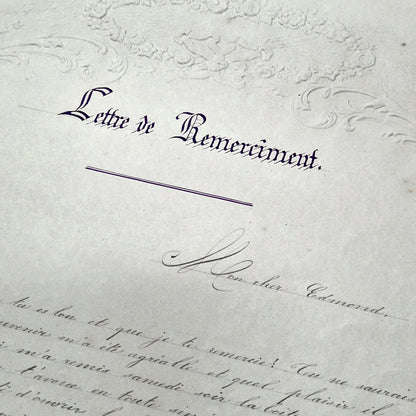 Lettre de Remercîment.
Mon cher Edmond.
tu es bon et que je te remercie! Tu ne saurai
ouvenir m'a été agréable et quel plaisir
m'a remis samedi soir la boîte
t'avoue en toute
d'ouvrir